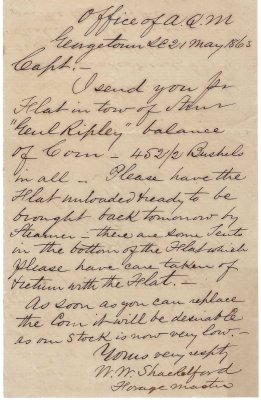 Office of A.Q.M
Georgetown SC 21 May 1865
Capt. –
I send you pr
Flat in tow of Stmr
"Genl Ripley" balance
of Corn – 452 1/2 Bushels
in all – Please have the
Flat unloaded & ready to be
brought back tomorrow by
Steamer – there are some Tents
in the bottom of the Flat which
please have care taken of
& return with the Flat. –
As soon as you can replace
the Corn it will be desirable
as our Stock is now very low. –
Yours very respty
W. W. Shackelford
Forage master